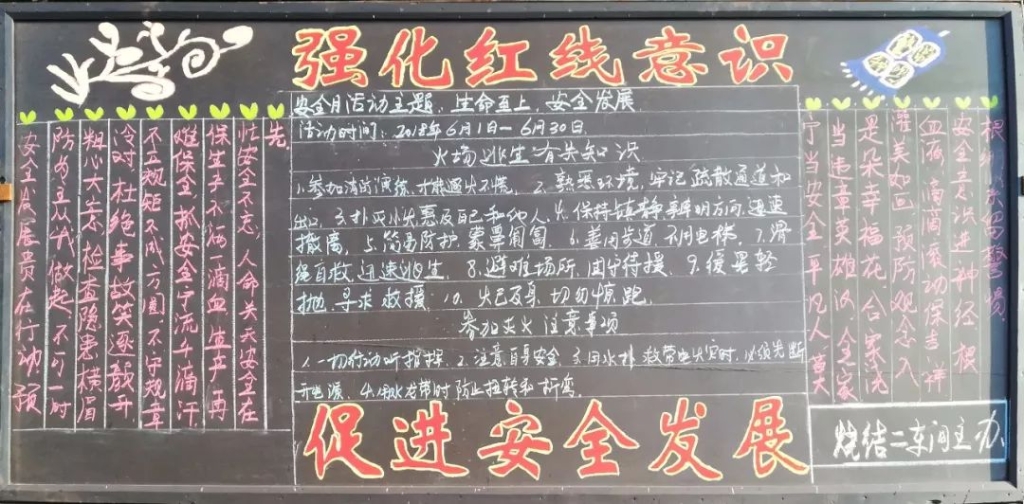 强化红线意识
安全月活动主题：生命至上、安全发展
活动时间：2018年6月1日—6月30日
火场逃生有关知识
1.参加消防演练，才能遇火不慌。2.熟悉环境，牢记疏散通道和
出口。3.扑灭小火惠及自己和他人。4.保持镇静辨明方向迅速
撤离。5.简易防护蒙鼻匍匐。6.善用步道不用电梯。7.滑
绳自救迅速逃生。8.避难场所，固守待援。9.缓晃轻
抛寻求救援。10.火已及身切勿惊跑。
参加灭火注意事项
1.一切行动听指挥 2.注意自身安全 3.用水扑救带电火灾时，必须先断
开电源。4.水龙带时防止扭转和折弯。
促进安全发展
安全意识进神经根
血液滴滴滚动保吉祥
灌美如画预防观念入
是朵幸福花合家浇
当违章英雄汉全家
宁当安全平凡人莫大
先
忙安全不忘人命关天安全在
保生手不洒一滴血生产再
难保全抓安全宁流千滴汗
不立规矩不成方圆不守规章
冷对杜绝事故笑逐颜开
粗心大意检查隐患横眉
防为主从我做起不可一时
安全发展贵在行动预
烧结二车间主办